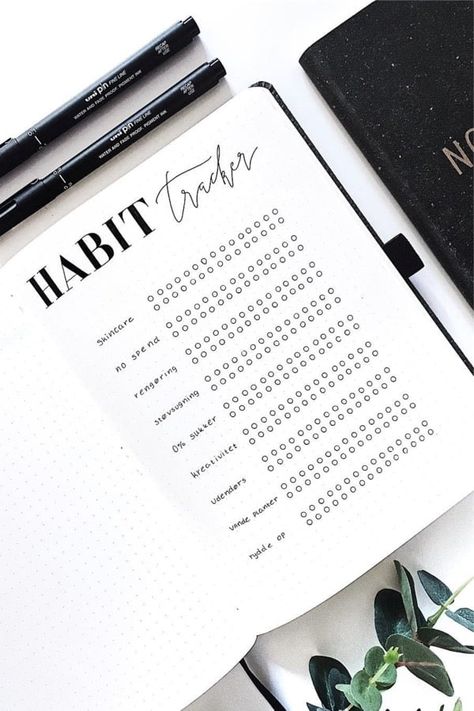 uni pin FINE LINE
WATER AND FADE PROOF, PIGMENT INK
0.1
uni pin FINE LINE
WATER AND FADE PROOF, PIGMENT INK
HABIT tracker
Skincare
no spend
rengøring
støvsugning
0% sukker
kreativitet
udendørs
vande planter
rydde op
NO